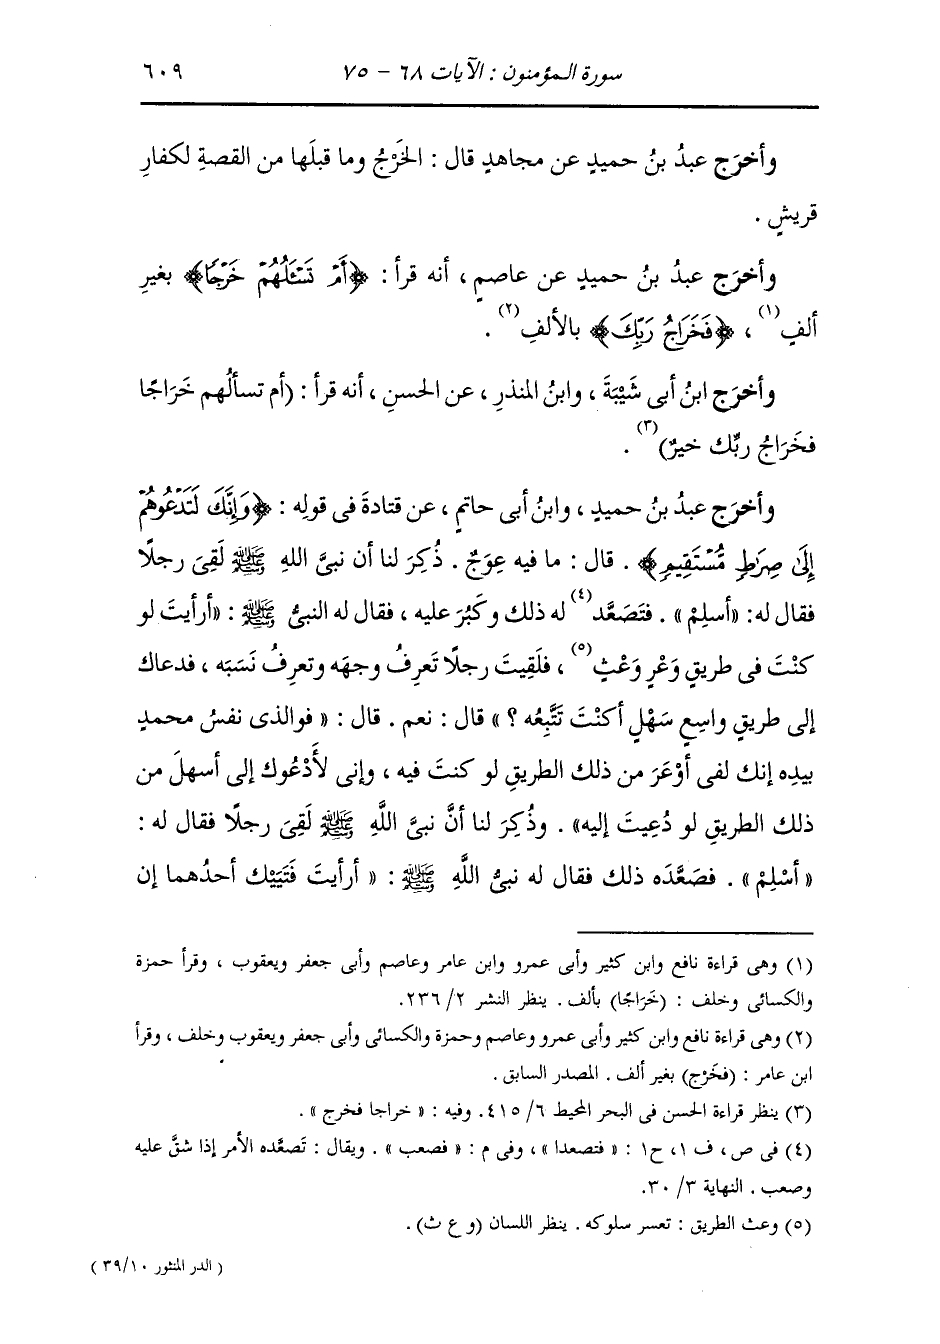 سورة المؤمنون : الآيات ٦٨ - ٧٥ ٦٠٩
وأخرَج عبدُ بنُ حميدٍ عن مجاهدٍ قال : الخَرْجُ وما قبلَها من القصةِ لكفارِ
قريشٍ .
وأخرَج عبدُ بنُ حميدٍ عن عاصمٍ ، أنه قرأ : ﴿أَمْ تَسْـَٔلُهُمْ خَرْجًا﴾ بغيرِ
ألفٍ(١) ، ﴿فَخَرَاجُ رَبِّكَ﴾ بالألفِ(٢) .
وأخرَج ابنُ أبى شَيْبَةَ ، وابنُ المنذرِ ، عن الحسنِ ، أنه قرأ : (أم تسألُهم خَرَاجًا
فخَرَاجُ ربِّك خيرٌ)(٣) .
وأخرَج عبدُ بنُ حميدٍ ، وابنُ أبى حاتمٍ ، عن قتادةَ فى قولِه : ﴿وَإِنَّكَ لَتَدْعُوهُمْ
إِلَىٰ صِرَٰطٍ مُّسْتَقِيمٍ﴾ . قال : ما فيه عِوَجٌ . ذُكِرَ لنا أن نبىَّ اللهِ ﷺ لَقِىَ رجلًا
فقال له: «أسلِمْ» . فتَصَعَّد(٤) له ذلك وكَبُرَ عليه ، فقال له النبىُّ ﷺ : «أرأيتَ لو
كنْتَ فى طريقٍ وَعْرٍ وَعْثٍ(٥) ، فلَقِيتَ رجلًا تَعرِفُ وجهَه وتعرِفُ نَسَبَه ، فدعاك
إلى طريقٍ واسِعٍ سَهْلٍ أكنْتَ تَتَّبِعُه ؟ » قال : نعم . قال : « فوالذى نفسُ محمدٍ
بيدِه إنك لفى أوْعَرَ من ذلك الطريقِ لو كنتَ فيه ، وإنى لأَدْعُوك إلى أسهلَ من
ذلك الطريقِ لو دُعِيتَ إليه» . وذُكِرَ لنا أنَّ نبىَّ اللَّهِ ﷺ لَقِىَ رجلًا فقال له :
« أسْلِمْ » . فصَعَّدَه ذلك فقال له نبىُّ اللَّهِ ﷺ : « أرأيتَ فَتَيَيْك أحدُهما إن
(١) وهى قراءة نافع وابن كثير وأبى عمرو وابن عامر وعاصم وأبى جعفر ويعقوب ، وقرأ حمزة
والكسائى وخلف : (خَرَاجًا) بألف . ينظر النشر ٢/ ٢٣٦.
(٢) وهى قراءة نافع وابن كثير وأبى عمرو وعاصم وحمزة والكسائى وأبى جعفر ويعقوب وخلف ، وقرأ
ابن عامر : (فخَرْج) بغير ألف . المصدر السابق .
(٣) ينظر قراءة الحسن فى البحر المحيط ٦/ ٤١٥. وفيه : « خراجا فخرج » .
(٤) فى ص، ف ١، ح١ : « فتصعدا » ، وفى م : « فصعب » . ويقال : تَصعَّده الأمر إذا شقَّ عليه
وصعب . النهاية ٣/ ٣٠.
(٥) وعث الطريق : تعسر سلوكه . ينظر اللسان (و ع ث) .
( الدر المنثور ٣٩/١٠ )